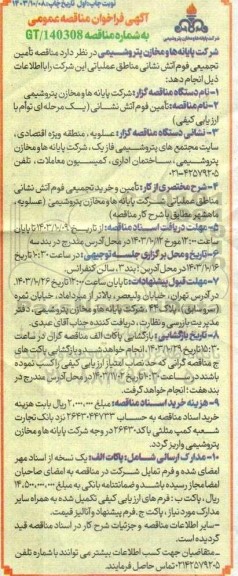 نوبت چاپ اول تاریخ چاپ: ۱۴۰۳/۱۰/۰۸
آگهی فراخوان مناقصه عمومی
به شماره مناقصه GT/140308
شرکت پایانه ها و مخازن پتروشیمی
شرکت پایانه ها و مخازن پتروشیمی در نظر دارد مناقصه تأمین
تجمیعی فوم آتش نشانی مناطق عملیاتی این شرکت را با اطلاعات
ذیل انجام دهد:
۱- نام دستگاه مناقصه گزار: شرکت پایانه ها و مخازن پتروشیمی
۲- نام مناقصه: تأمین فوم آتش نشانی (یک مرحله ای توأم با
ارزیابی کیفی)
۳- نشانی دستگاه مناقصه گزار: عسلویه، منطقه ویژه اقتصادی،
سایت مجتمع های پتروشیمی فاز یک، شرکت پایانه ها و مخازن
پتروشیمی، ساختمان اداری، کمیسیون معاملات، تلفن
۰۲۱-۴۲۵۷۹۲۰۵
۴- شرح مختصری از کار: تأمین و خرید تجمیعی فوم آتش نشانی
مناطق عملیاتی شرکت پایانه ها و مخازن پتروشیمی (عسلویه،
ماهشهر مطابق با شرح کار مناقصه)
۵- مهلت دریافت اسناد مناقصه: از تاریخ تا پایان
ساعت ۱۲:۰۰ مورخ ۱۴۰۳/۱۰/۱۲ در محل آدرس مندرج در بند سه
۶- تاریخ و محل برگزاری جلسه توجیهی: ساعت ۱۰:۳۰ تاریخ
۱۴۰۳/۱۰/۱۶ در محل آدرس بند ۳، سالن کنفرانس.
۷- مهلت قبول پیشنهادات: تا پایان ساعت ۱۲:۰۰ تاریخ ۱۴۰۳/۱۰/۲۶
در آدرس تهران، خیابان ولیعصر، بالاتر از میرداماد، خیابان ثمره
پلاک ۴۴، شرکت پایانه ها و مخازن پتروشیمی، دفتر
مدیریت بازرسی و نظارت، دریافت کننده جناب آقای عبدی.
۸- تاریخ بازگشایی: بازگشایی پاکات الف مناقصه گران در ساعت
۱۵:۳۰ تاریخ ۱۴۰۳/۱۰/۲۹ انجام خواهد شد و بازگشایی پاکت های
ج مناقصه گرانی که حد نصاب امتیاز ارزیابی کیفی را کسب نموده
باشند در ساعت ۱۰:۳۰ تاریخ در محل آدرس مندرج در
بند هفت؛ انجام خواهد گرفت.
۹- هزینه خرید اسناد مناقصه: مبلغ ۲،۰۰۰،۰۰۰ ریال بابت هزینه
خرید اسناد مناقصه به حساب ۲۶۴۳۰۴۴۷۳۳ نزد بانک تجارت
شعبه کمپ مثلثی با کد ۲۶۴۳۰ در وجه شرکت پایانه ها و مخازن
پتروشیمی واریز گردد.
۱۰- مدارک ارسالی شامل: پاکات الف: یک نسخه از اسناد مهر
امضاء شده و فرم تمایل شرکت در مناقصه به امضای صاحبان
امضاء مجاز رسیده باشد و ضمانتنامه بانکی به مبلغ ۱۴،۵۰۰،۰۰۰،۰۰۰
ریال، پاکت ب: فرم های ارزیابی کیفی تکمیل شده به همراه سایر
مدارک مورد نیاز، پاکت ج: فرم پیشنهاد و آنالیز قیمت.
-سایر اطلاعات مناقصه و جزئیات شرح کار در اسناد مناقصه قید
گردیده است.
-متقاضیان جهت کسب اطلاعات بیشتر می توانند با شماره تلفن
۰۲۱۴۲۵۷۹۲۰۵ تماس حاصل فرمایند.